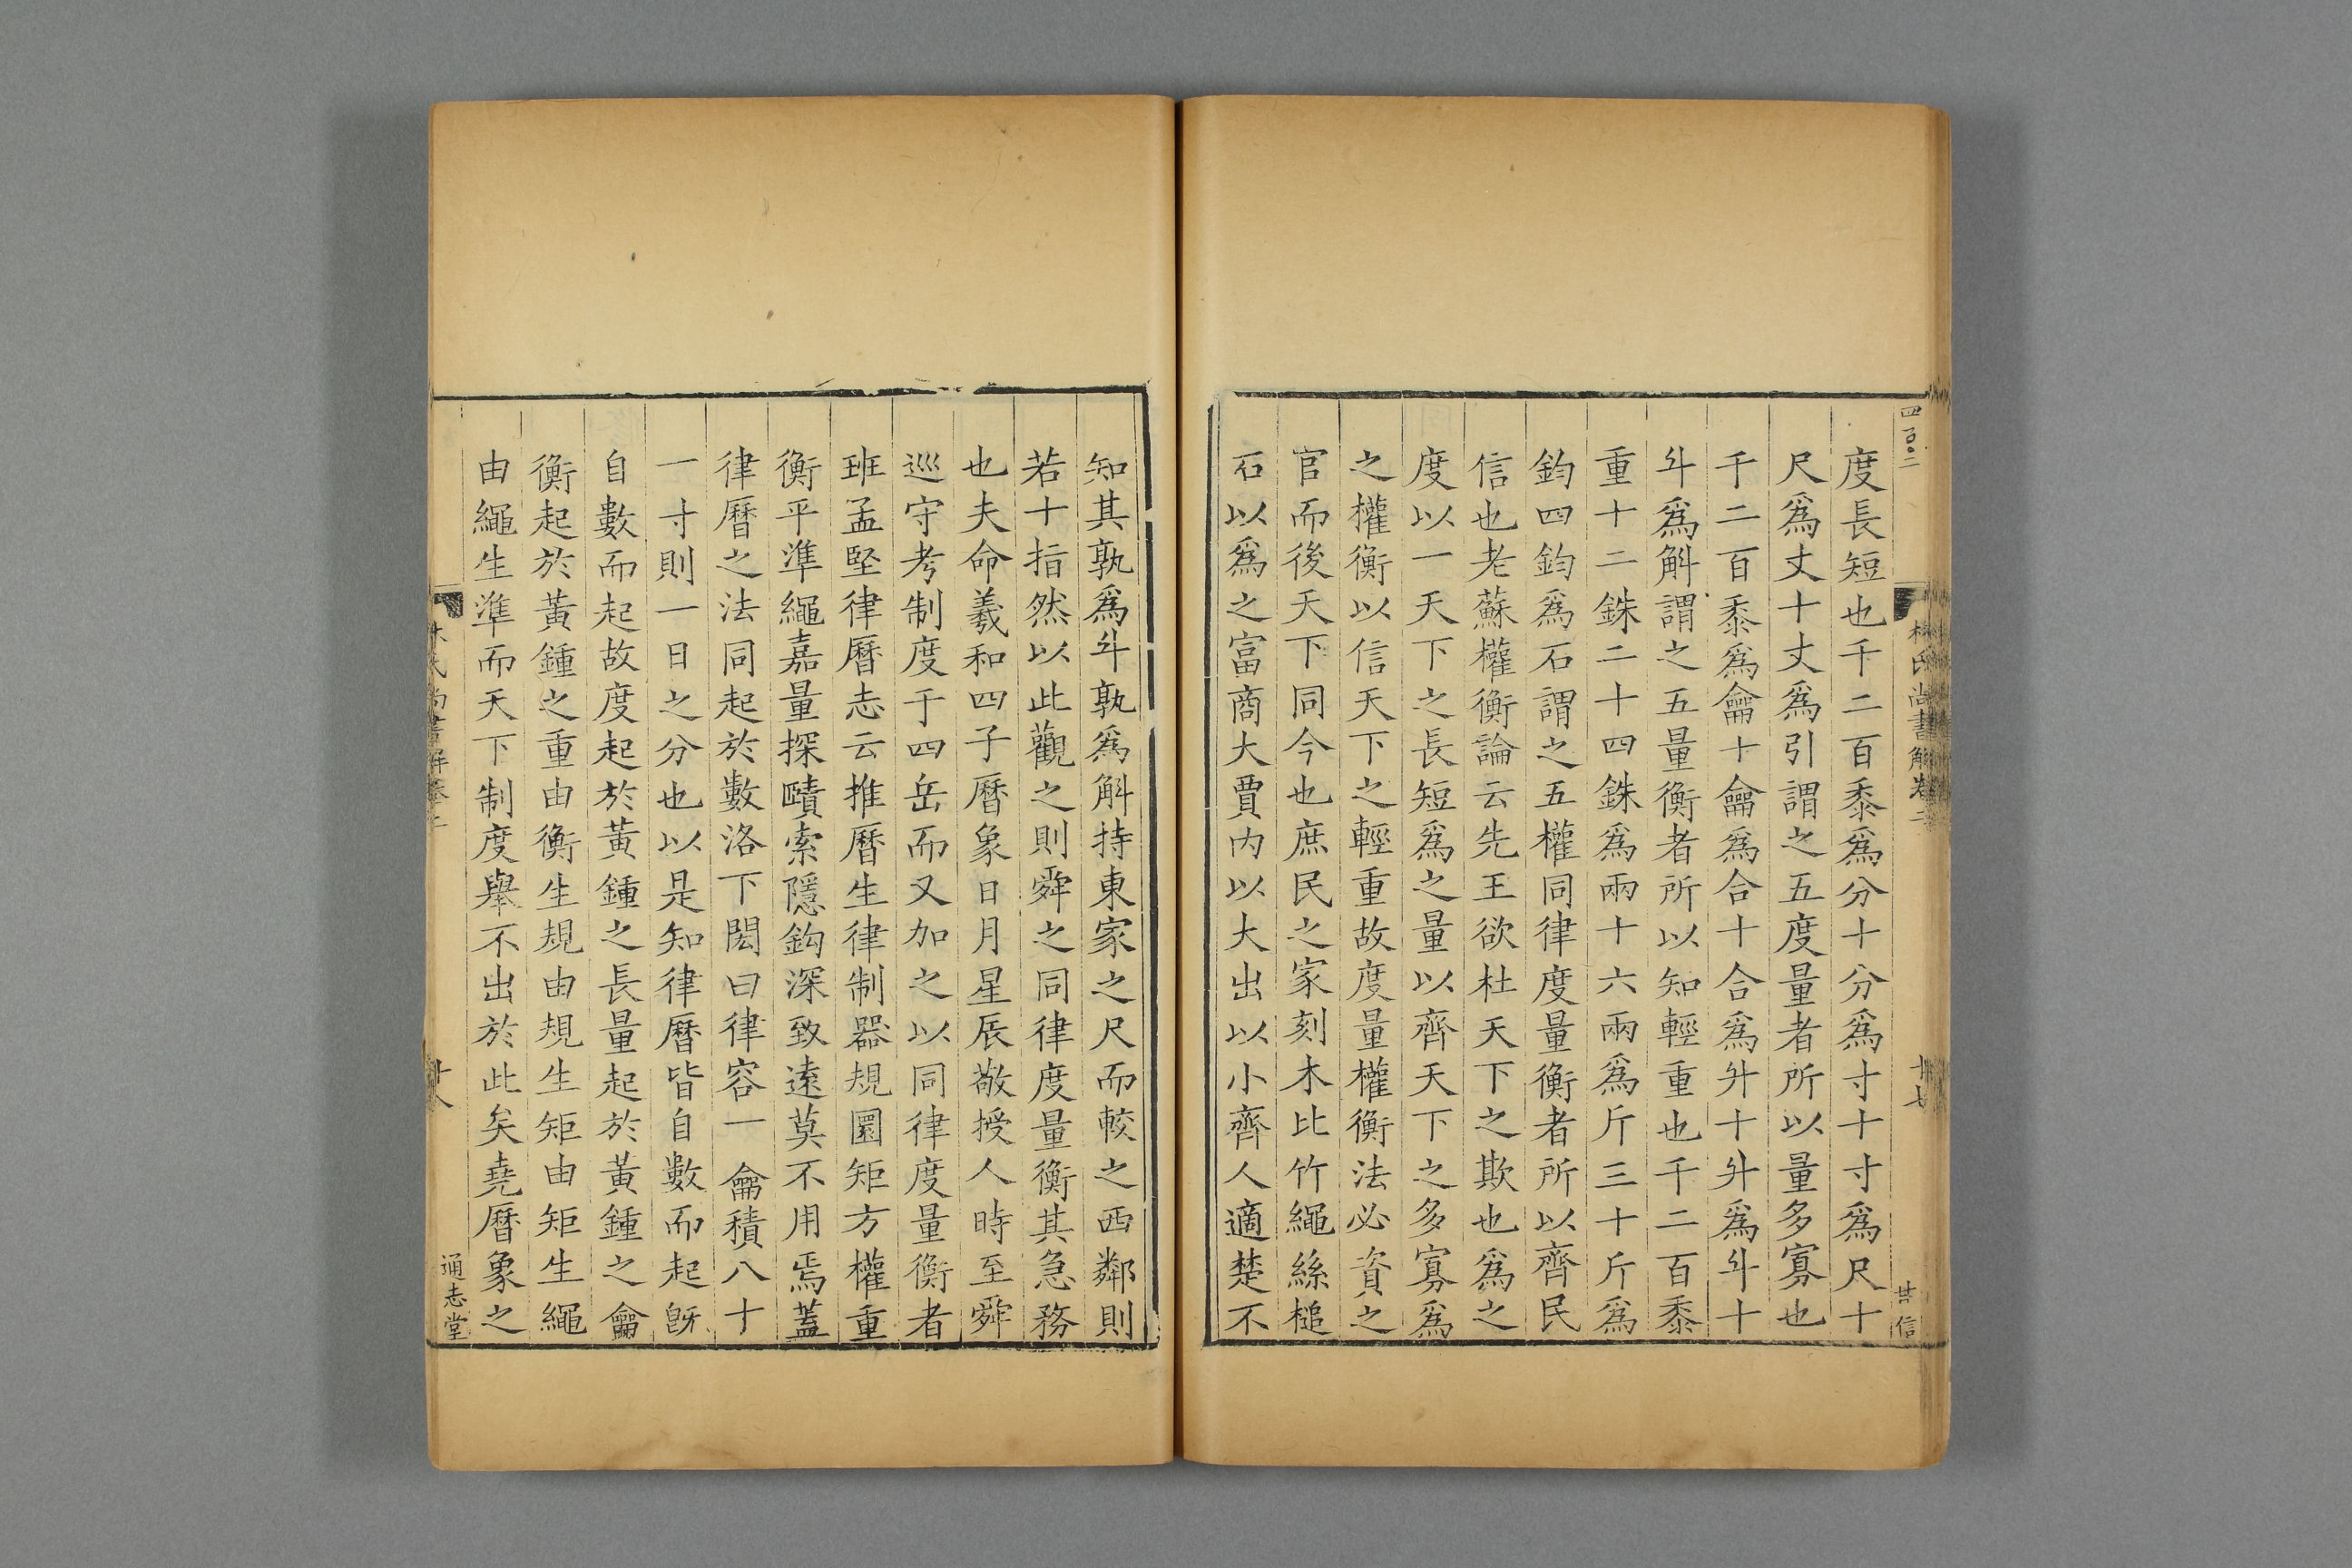 度長短也千二百黍爲分十分爲寸十寸爲尺十
尺爲丈十丈爲引謂之五度量者所以量多寡也
千二百黍爲龠十龠爲合十合爲升十升爲斗十
斗爲斛謂之五量衡者所以知輕重也千二百黍
重十二銖二十四銖爲兩十六兩爲斤三十斤爲
鈞四鈞爲石謂之五權同律度量衡者所以齊民
信也老蘇權衡論云先王欲杜天下之欺也爲之
度以一天下之長短爲之量以齊天下之多寡爲
之權衡以信天下之輕重故度量權衡法必資之
官而後天下同今也庶民之家刻木比竹繩絲槌
石以爲之富商大賈內以大出以小齊人適楚不
知其孰爲斗孰爲斛持東家之尺而較之西鄰則
若十指然以此觀之則舜之同律度量衡其急務
也夫命羲和四子曆象日月星辰敬授人時至舜
巡守考制度于四岳而又加之以同律度量衡者
班孟堅律曆志云推曆生律制器規圜矩方權重
衡平準繩嘉量探賾索隱鈎深致遠莫不用焉蓋
律曆之法同起於數洛下閎曰律容一龠積八十
一寸則一日之分也以是知律曆皆自數而起旣
自數而起故度起於黃鍾之長量起於黃鍾之龠
衡起於黃鍾之重由衡生規由規生矩由矩生繩
由繩生準而天下制度舉不出於此矣堯曆象之
四百二
林氏尚書解卷二
十七
甘信
林氏尚書解卷二
十八
通志堂